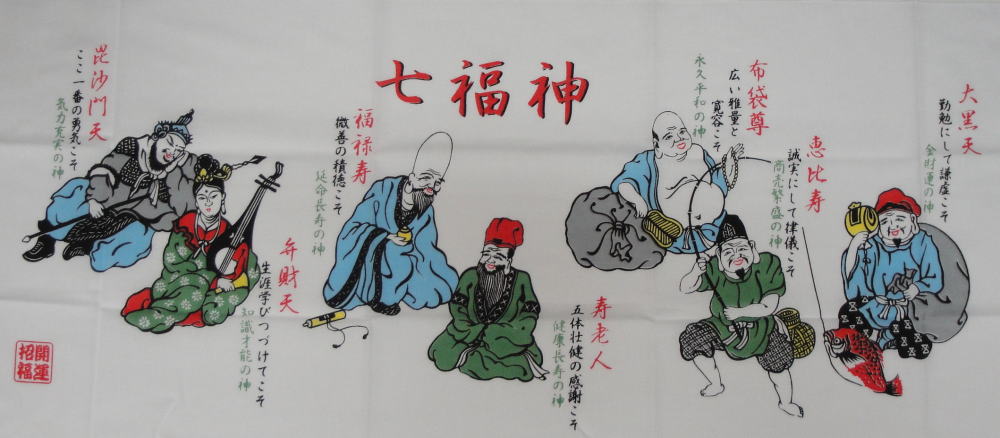 七福神
大黒天
勤勉にして謙虚こそ
金財運の神
恵比寿
誠実にして律儀こそ
商売繁盛の神
布袋尊
広い雅量と
寛容こそ
永久平和の神
寿老人
五体壮健の感謝こそ
健康長寿の神
福禄寿
微善の積徳こそ
延命長寿の神
弁財天
生涯学びつづけてこそ
知識才能の神
毘沙門天
ここ一番の勇気こそ
気力充実の神
開運
招福